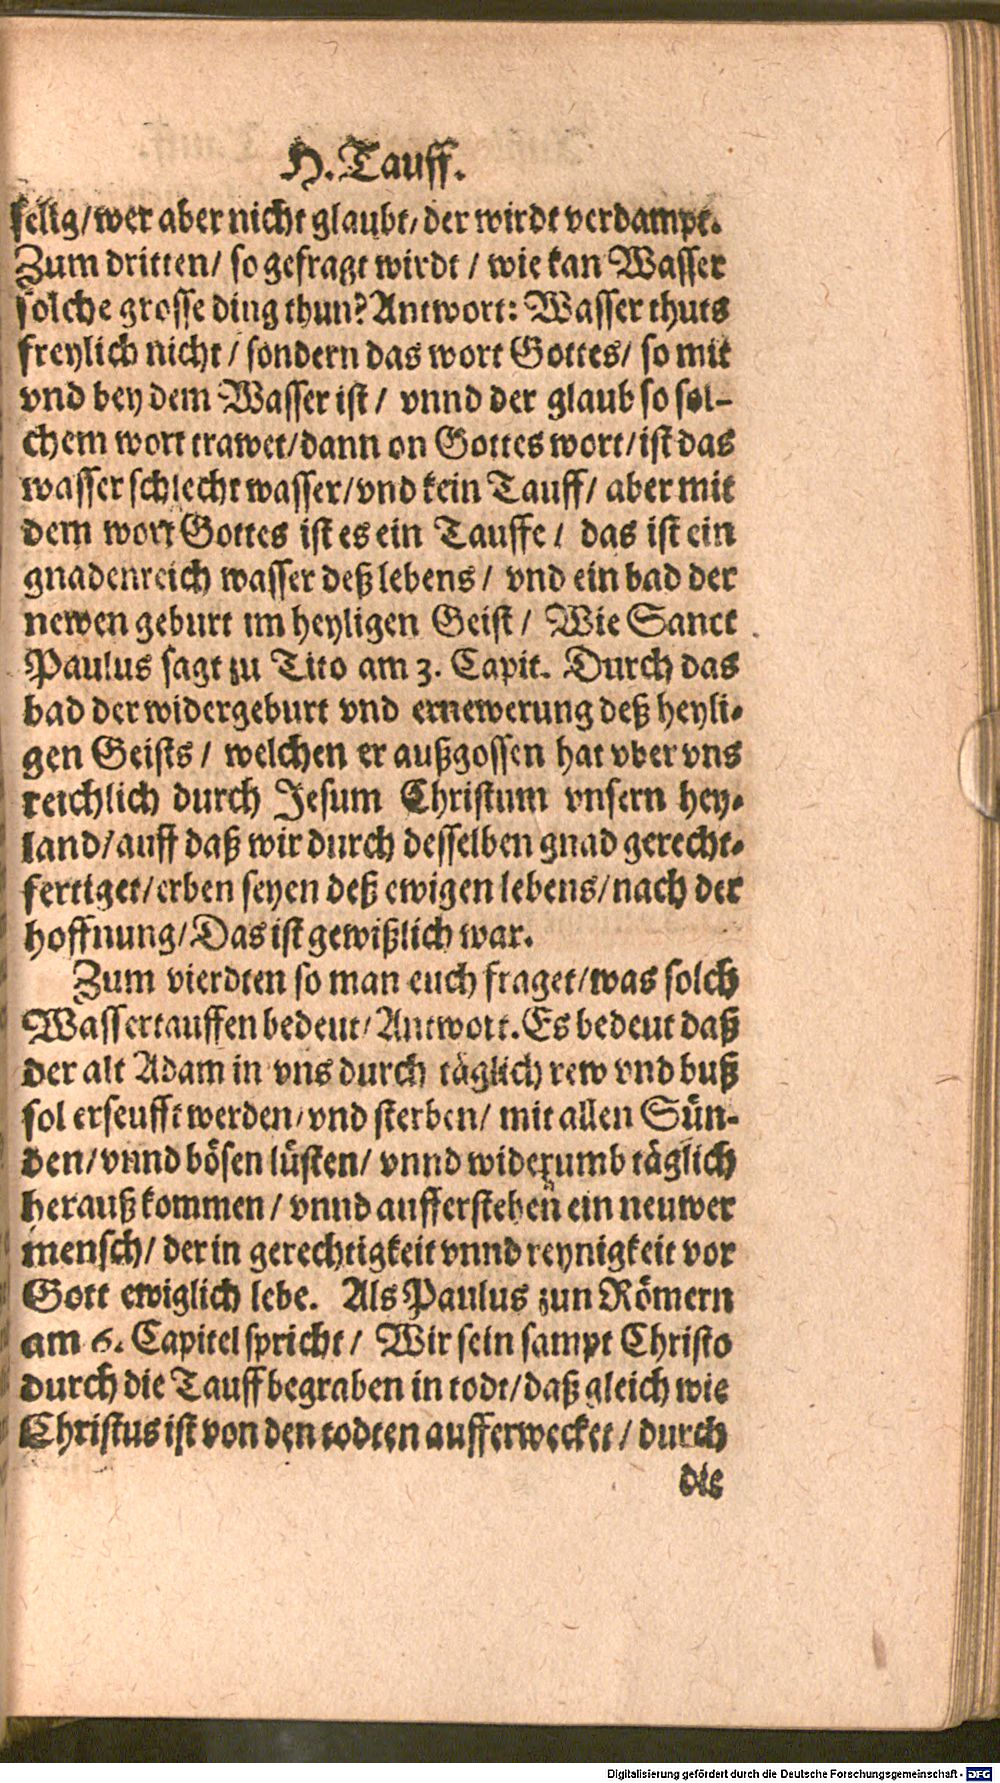 H. Tauff.
selig/ wer aber nicht glaubt/ der wirdt verdampt.
Zum dritten/ so gefragt wirdt / wie kan Wasser
solche grosse ding thun? Antwort: Wasser thuts
freylich nicht / sondern das wort Gottes/ so mit
vnd bey dem Wasser ist / vnnd der glaub so sol-
chem wort trawet/ dann on Gottes wort/ ist das
wasser schlecht wasser/ vnd kein Tauff/ aber mit
dem wort Gottes ist es ein Tauffe / das ist ein
gnadenreich wasser deß lebens / vnd ein bad der
newen geburt im heyligen Geist / Wie Sanct
Paulus sagt zu Tito am 3. Capit. Durch das
bad der widergeburt vnd ernewerung deß heyli-
gen Geists / welchen er außgossen hat vber vns
reichlich durch Jesum Christum vnsern hey-
land/ auff daß wir durch desselben gnad gerecht-
fertiget/ erben seyen deß ewigen lebens/ nach der
hoffnung/ Das ist gewißlich war.
Zum vierdten so man euch fraget/ was solch
Wassertauffen bedeut/ Antwort. Es bedeut daß
der alt Adam in vns durch täglich rew vnd buß
sol erseufft werden/ vnd sterben/ mit allen Sün-
den/ vnnd bösen lüsten/ vnnd widerumb täglich
herauß kommen / vnnd aufferstehen ein neuwer
mensch/ der in gerechtigkeit vnnd reynigkeit vor
Gott ewiglich lebe. Als Paulus zun Römern
am 6. Capitel spricht / Wir sein sampt Christo
durch die Tauff begraben in todt/ daß gleich wie
Christus ist von den todten aufferwecket / durch
die
Digitalisierung gefördert durch die Deutsche Forschungsgemeinschaft - DFG